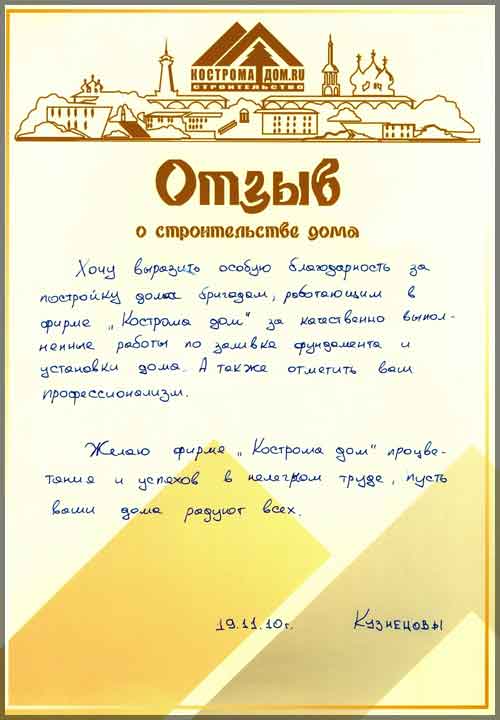 КОСТРОМА ДОМ.RU
СТРОИТЕЛЬСТВО
Отзыв
о строительстве дома
Хочу выразить особую благодарность за
постройку дома бригадам, работающим в
фирме „Кострома дом" за качественно выпол-
ненные работы по заливка фундамента и
установки дома. А также отметить ваш
профессионализм.
Желаю фирме „Кострома дом" процве-
тания и успехов в нелегком труде, пусть
ваши дома радуют всех.
19.11.10г. Кузнецовы